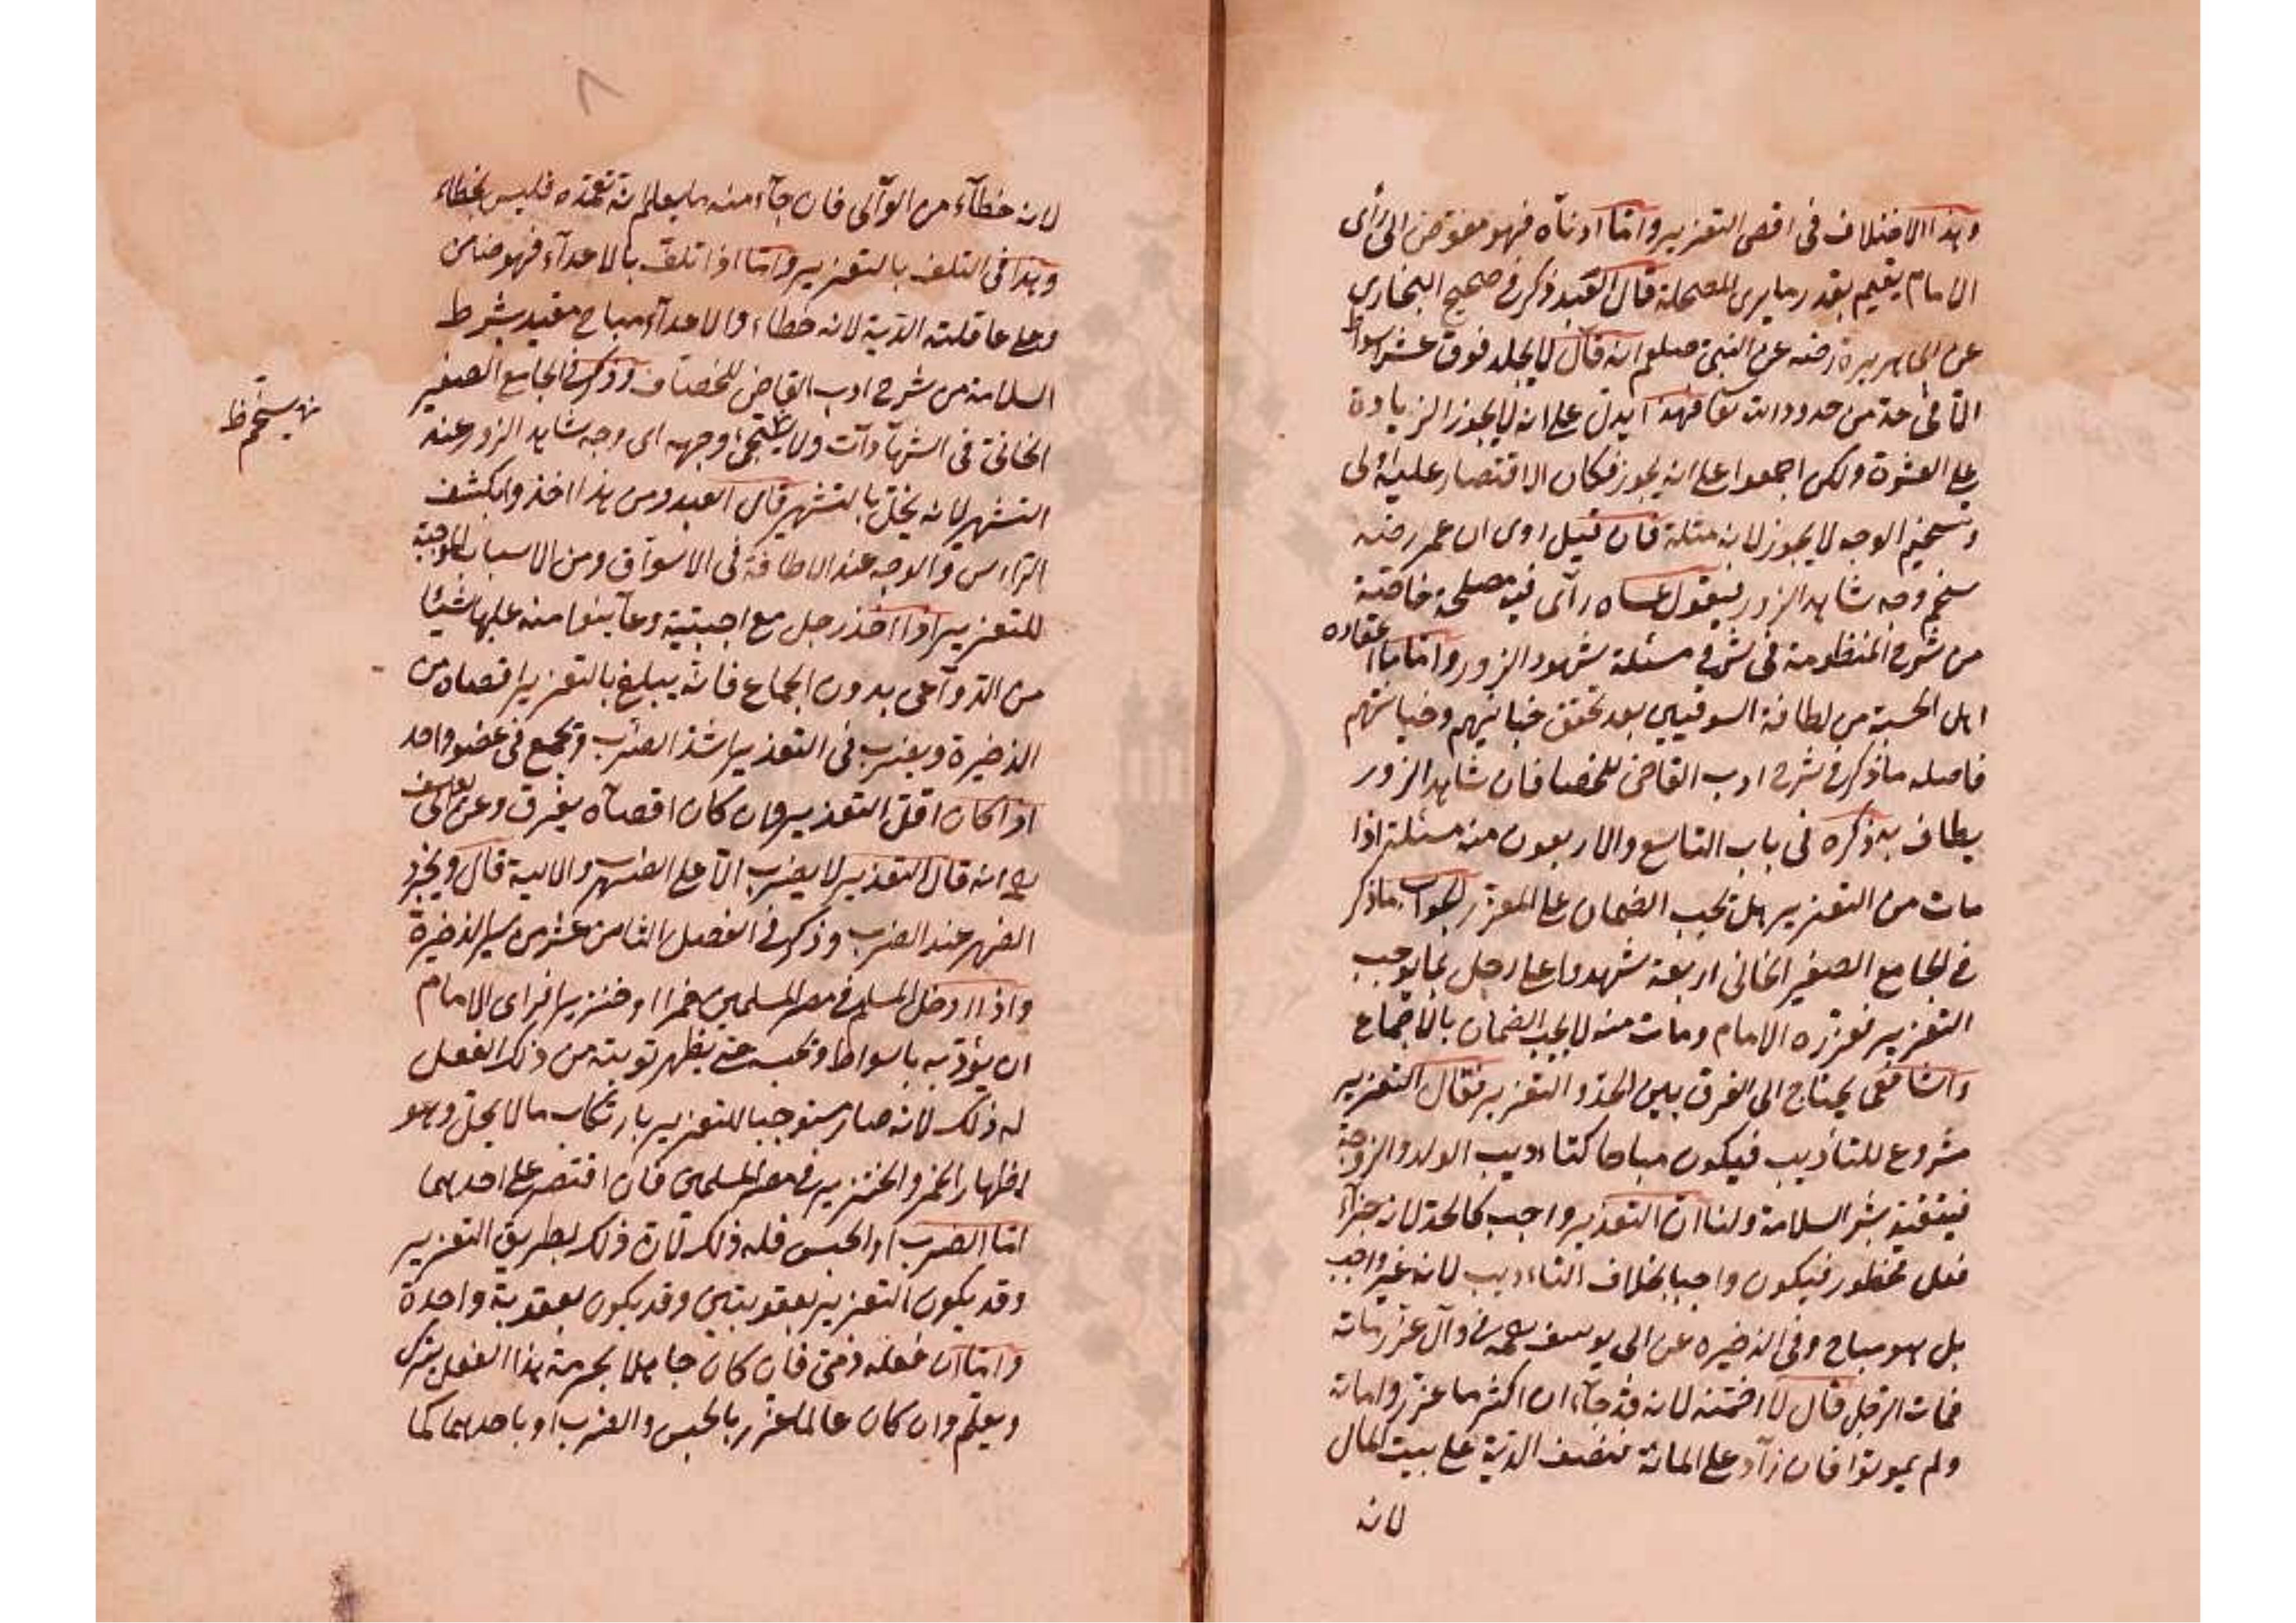 وهذا الاختلاف فى اقصى التعزير واما ادناه فهو مفوض الى رأى
الامام يقيم بقدر ما يرى المصلحة قال العبد ذكر فى صحيح البخارى
عن ابى هريرة رضه عن النبى صلعم انه قال لا يجلد فوق عشر اسواط
الا فى حد من حدود الله تعا فهذا يدل على انه لا يجوز الزيادة
على العشرة ولكن اجمعوا على انه يجوز فكان الاقتصار عليه اولى
وتسخيم الوجه لا يجوز لانه مثلة فان قيل روى ان عمر رضه
سخم وجه شاهد الزور فيقول عساه رآى فيه مصلحة خاصة
من شرح المنظومة فى شرح مسئلة شهود الزور واما ما اعتاده
اهل الحسبة من اطافة السوقيين بعد تحقق خيانتهم
فاصله ما ذكر فى شرح ادب القاضى للخصاف ان شاهد الزور
يطاف به ذكره فى باب التاسع والاربعون منه مسئلة اذا
مات من التعزير هل تجب الضمان على المعزر الجواب ما ذكر
فى الجامع الصغير الخانى اربعة شهدوا على رجل بما يوجب
التعزير فعزره الامام ومات منه لا يجب الضمان بالاجماع
والشافعى يحتاج الى الفرق بين الحد والتعزير فقال التعزير
مشروع للتأديب فيكون مباحا كتاديب الولد والزوجة
فيتقيد بشرط السلامة ولنا ان التعذير واجب كالحد لانه جزآء
فعل محظور فيكون واجبا بخلاف التاءديب لانه غير واجب
بل هو مباح وفى الذخيره عن ابى يوسف رحمه فى وآل عزر مائة
فمات الرجل قال لا اضمنه لانه قد جآء ان اكثر ما عزروا مائة
ولم يموتوا فان زآد على المائة فنصف الدية على بيت المال
لانه
٨
لانه خطآء من الوآلى فان جآء منه ما يعلم انه تعمده فليس بخطاء
وهذا فى التلف بالتعزير واما اذا تلف بالاعدآء فهو ضامن
وعلى عاقلته الدية لانه خطاء والاعدآء مباح مقيد بشرط
السلامة من شرح ادب القاضى للخصاف وذكر فى الجامع الصغير
الخانى فى الشهآدات ولا يسخم وجهه اى وجه شاهد الزور عند
التشهير لانه يخل بالتشهير قال العبد ومن هذا اخذ وا بكشف
الرأس والوجه عند الاطافة فى الاسواق ومن الاسباب الموجبة
للتعزير اذا اخذ رجل مع اجنبية وعآينوا منه عليها شيئا
من الدوآعى بدون الجماع فانه يبلغ بالتعزير اقصاه من
الذخيرة ويضرب فى التعذير اشد الضرب ويجمع فى عضو واحد
اذا كان اقل التعذير فان كان اقصآه يفرق وعن ابى يوسف
رح انه قال التعذير لا يضرب الا على الظهر والالية قال ويجرد
الظهر عند الضرب وذكر فى الفصل الثامن عشر من سير الذخيرة
واذا ادخل المسلم فى مصر المسلمين خمرا او خنزيرا فراى الامام
ان يؤدبه باسواط وتحبسه حتى يظهر توبته من ذلك الفعل
له ذلك لانه صار مستوجبا للتعزير بارتكاب ما لا يحل وهو
اظهار الخمر والخنزير فى مصر المسلمين فان اقتصر على احدهما
اما الضرب او الحبس فله ذلك لان ذلك بطريق التعزير
وقد يكون التعزير بعقوبتين وقد يكون بعقوبة واحدة
واما ان فعله ذمى فان كان جاهلا بحرمة هذا الفعل يترك
ويعلم وان كان عالما عزر بالحبس والضرب او باحدهما كما
يسخم ظ